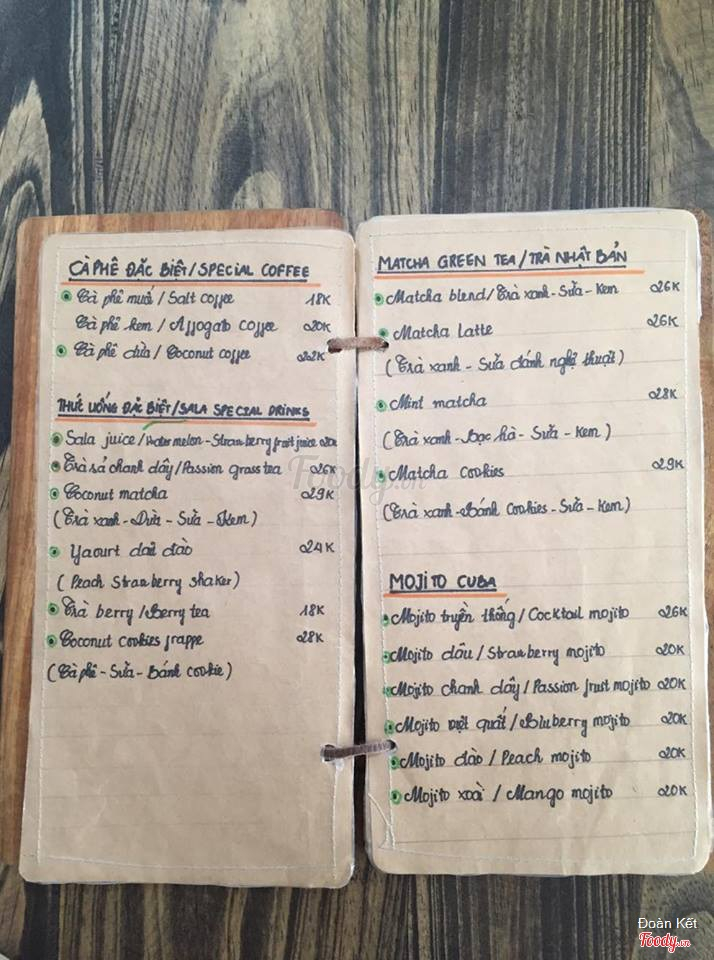 CÀ PHÊ ĐẶC BIỆT/SPECIAL COFFEE
Cà phê muối / Salt coffee 18K
Cà phê kem / Affogato coffee 20K
Cà phê dừa / Coconut coffee 22K
THỨC UỐNG ĐẶC BIỆT/SALA SPECIAL DRINKS
Sala juice / Water melon - Strawberry fruit juice 20K
Trà sả chanh dây/Passion grass tea 26K
Coconut matcha 29K
(Trà xanh - Dừa - Sữa - Kem)
Yaourt dâu đào 24K
(Peach Strawberry shaker)
Trà berry / Berry tea 18K
Coconut cookies frappe 28K
(Cà phê - Sữa - Bánh cookie)
MATCHA GREEN TEA / TRÀ NHẬT BẢN
Matcha blend/Trà xanh - Sữa - Kem 26K
Matcha Latte 26K
(Trà xanh - Sữa đánh nghệ thuật)
Mint matcha 28K
(Trà xanh - Bạc hà - Sữa - Kem)
Matcha Cookies 29K
(Trà xanh - Bánh Cookies - Sữa - Kem)
MOJITO CUBA
Mojito truyền thống / Cocktail mojito 26K
Mojito dâu / Strawberry mojito 20K
Mojito chanh dây / Passion fruit mojito 20K
Mojito việt quất / Bluberry mojito 20K
Mojito đào / Peach mojito 20K
Mojito xoài / Mango mojito 20K
Foody.vn
Đoàn Kết
Foody.vn